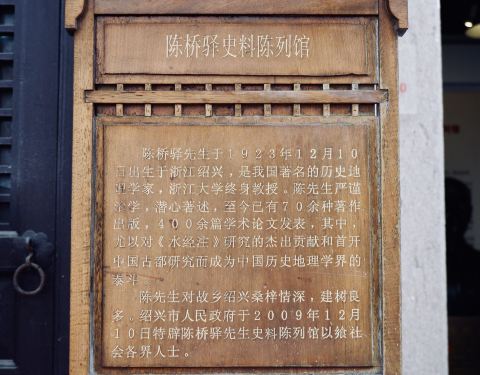 陈桥驿史料陈列馆
陈桥驿先生于1923年12月10
日出生于浙江绍兴，是我国著名的历史地
理学家，浙江大学终身教授。陈先生严谨
治学，潜心著述，至今已有70余种著作
出版，400余篇学术论文发表，其中，
尤以对《水经注》研究的杰出贡献和首开
中国古都研究而成为中国历史地理学界的
泰斗。
陈先生对故乡绍兴桑梓情深，建树良
多。绍兴市人民政府于2009年12月
10日特辟陈桥驿先生史料陈列馆以飨社
会各界人士。